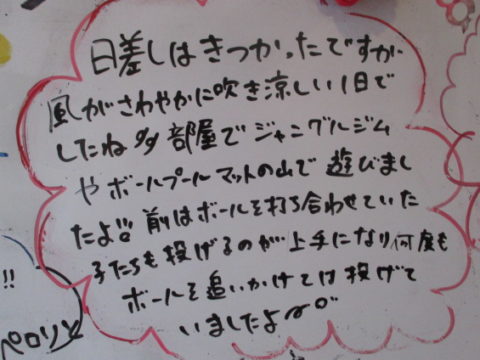 日差しはきつかったですが
風がさわやかに吹き涼しい1日で
したね 部屋でジャングルジム
やボールプールマットの山で遊びまし
たよ!! 前はボールを打ち合わせていた
子たちも投げるのが上手になり何度も
ボールを追いかけては投げて
いましたよ〜
!!
ペロリと